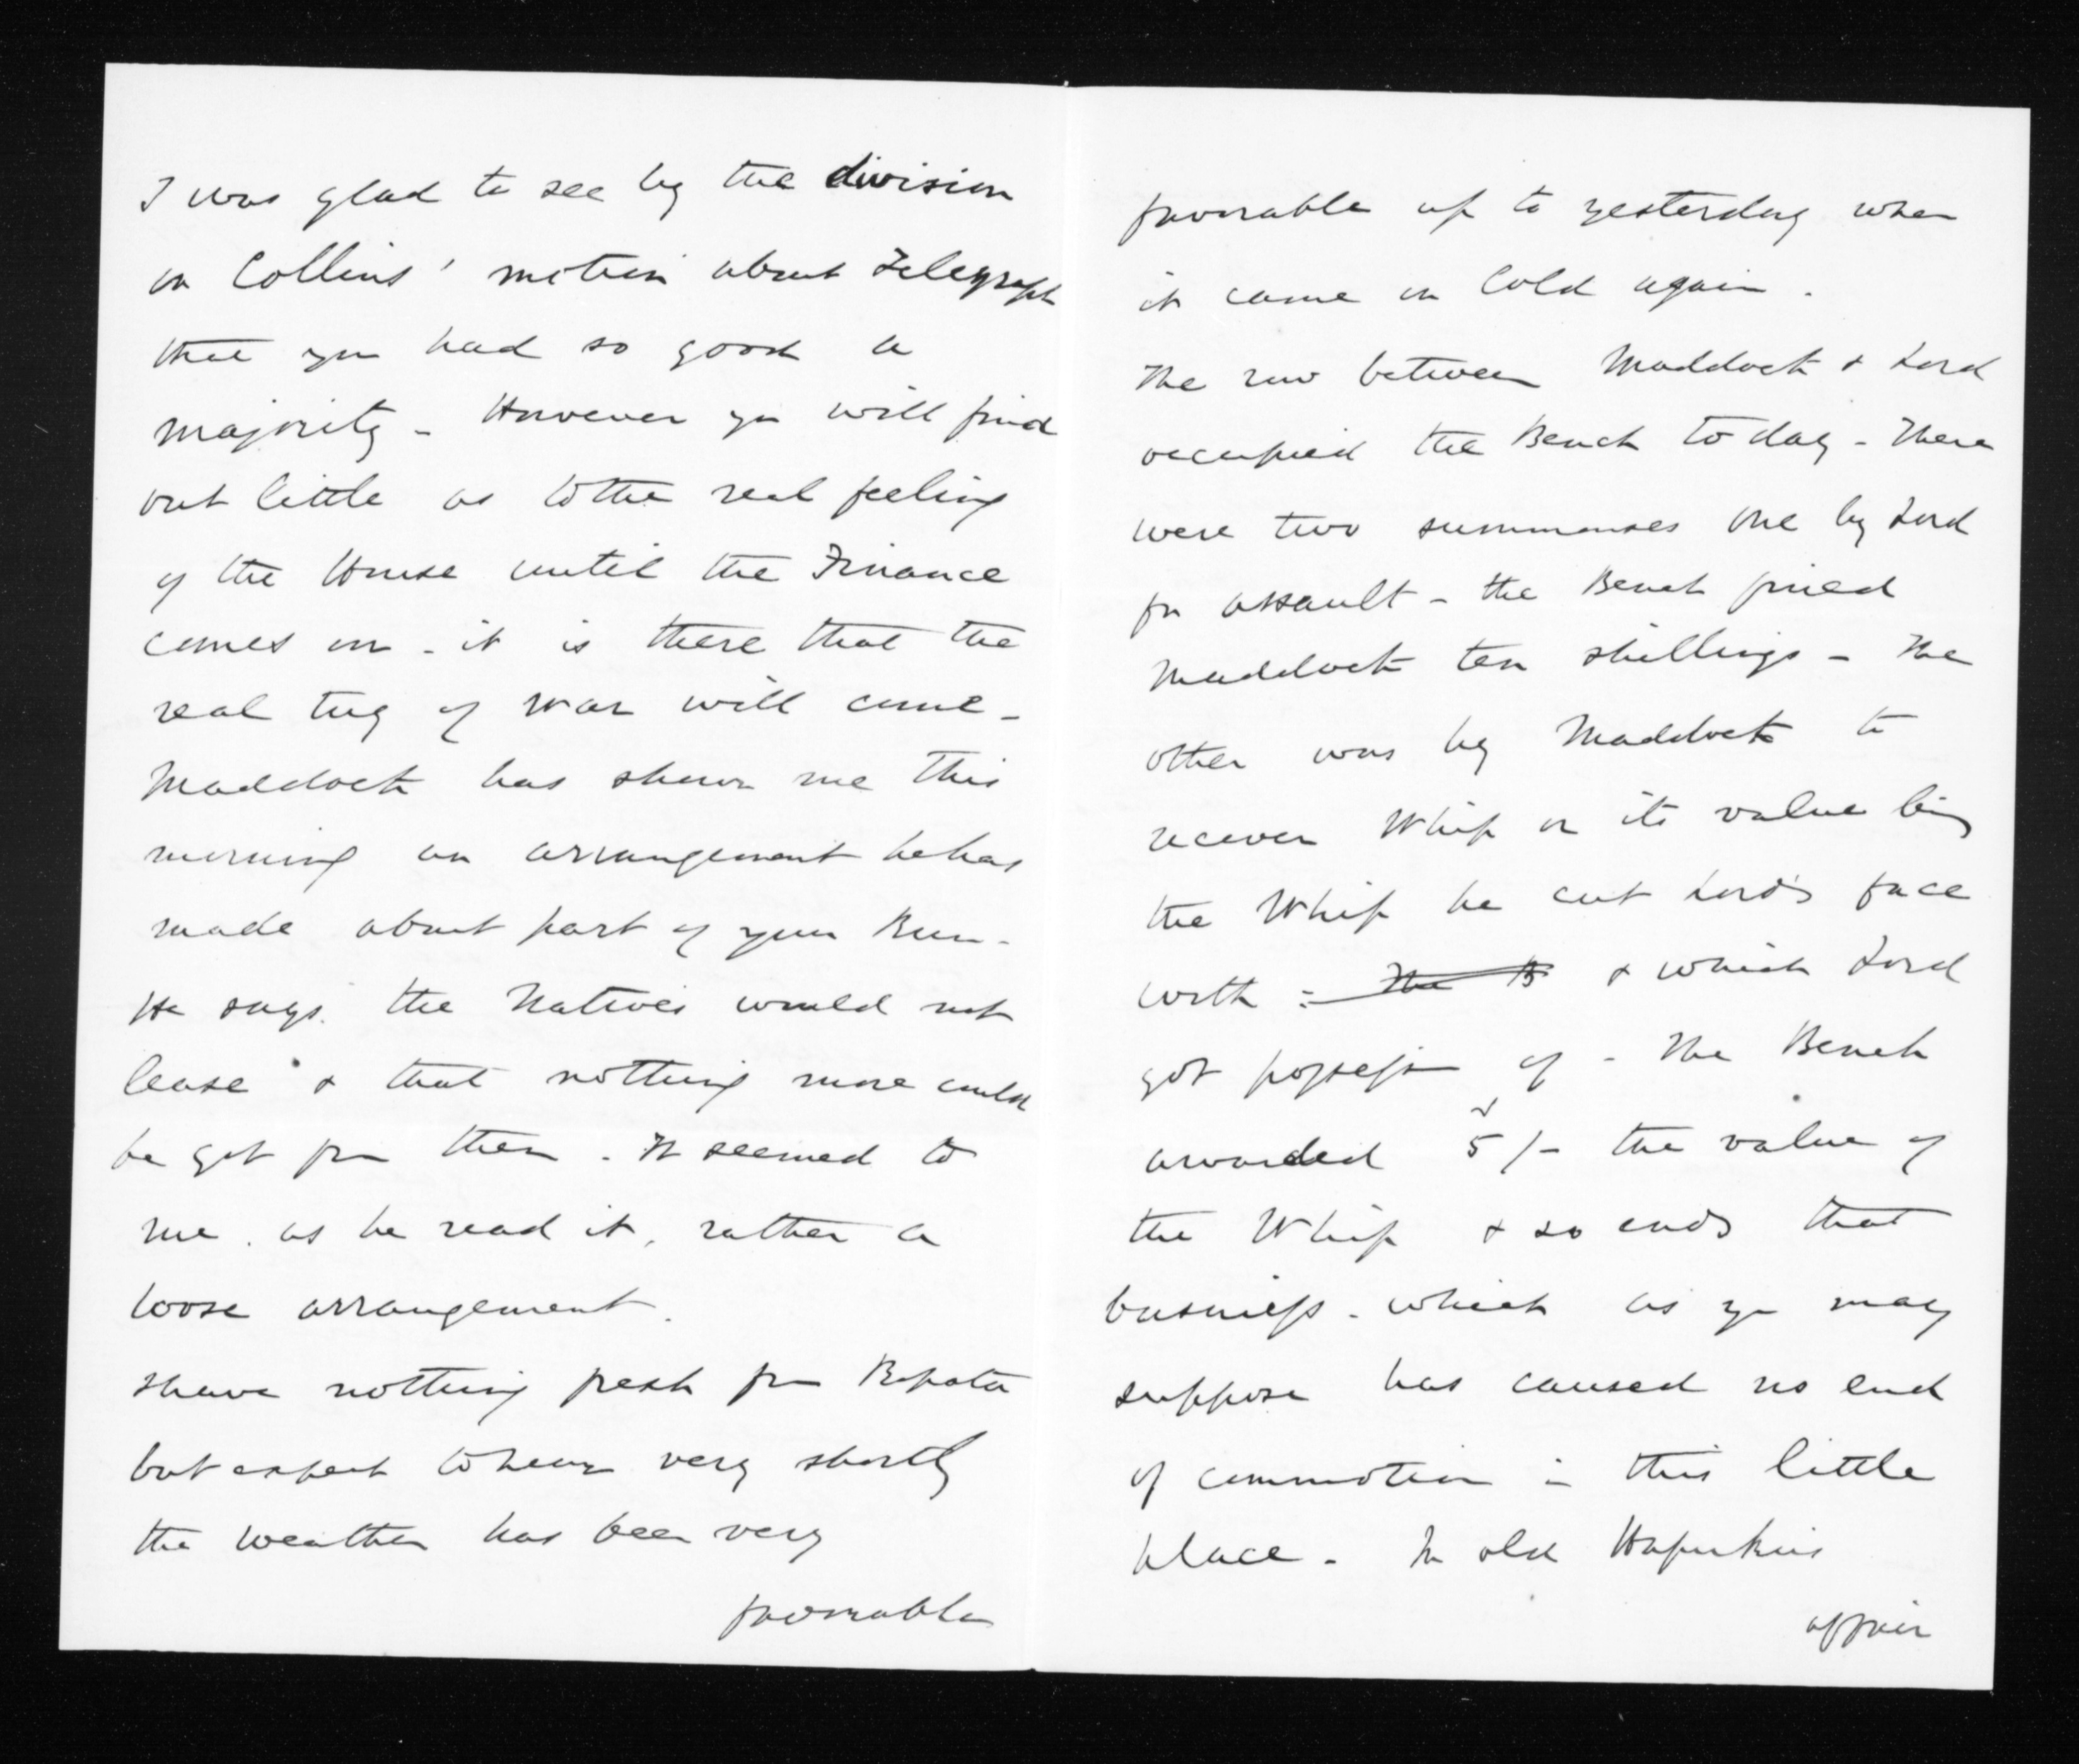 I was glad to see by the division
on Collins' motion about Telegraph
that you had so good a
majority - However you will find
out little as to the real feeling
of the House until the Finance
comes on - it is there that the
real tug of War will come -
Maddock has shewn me this
morning an arrangement he has
made about part of your Run -
He says the Natives would not
lease & that nothing more could
be got from them - It seemed to
me, as he read it, rather a
loose arrangement.
I have nothing fresh from Ropata
but expect to hear very shortly
the weather has been very
favorable
favorable up to yesterday when
it came on Cold again.
The row between Maddock & Lord
occupied the Bench to day - There
were two summonses one by Lord
for assault - the Bench fined
Maddock ten shillings - The
other was by Maddock to
recover Whip or its value being
the Whip he cut Lord's face
with - The B & which Lord
got possession of - The Bench
awarded 5/- the value of
the Whip & so ends that
business - which as you may
suppose has caused no end
of commotion in this little
place - In old
affair